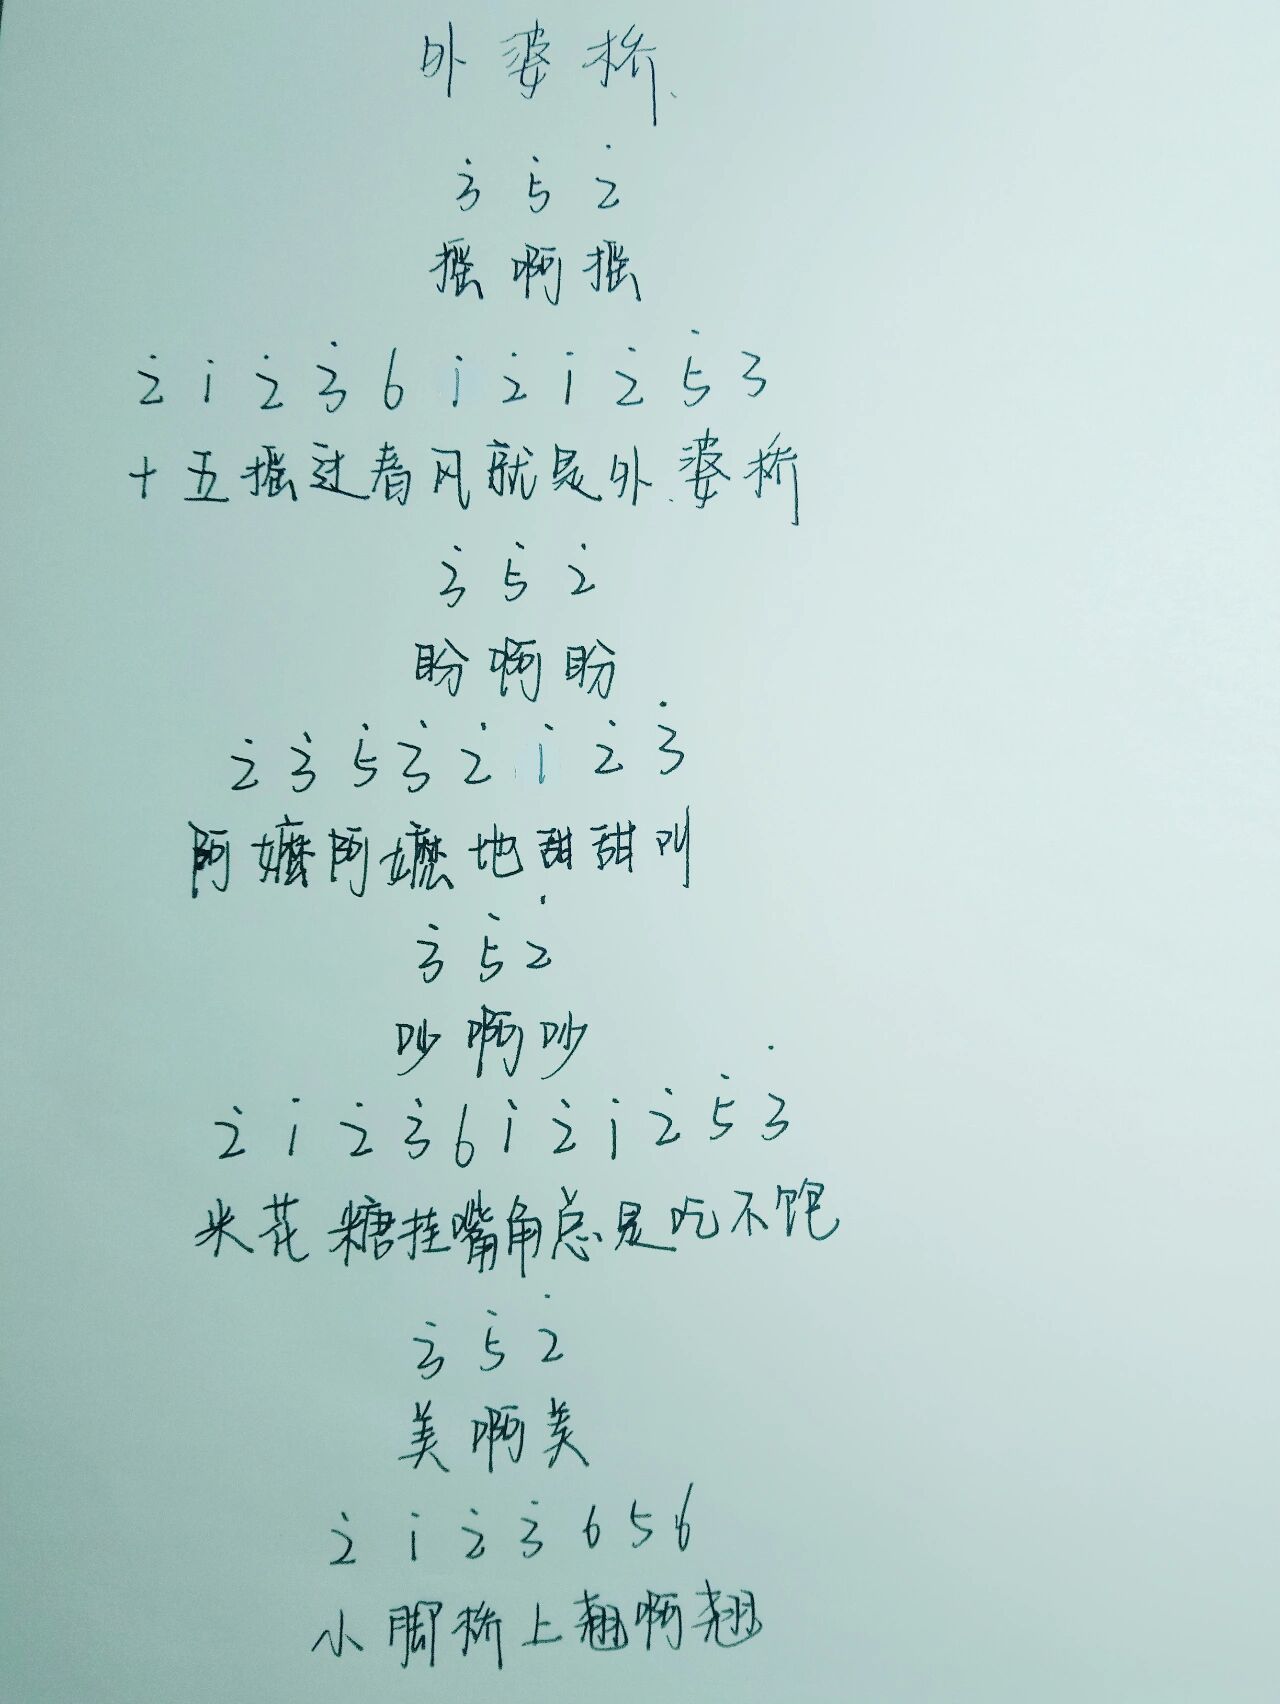 外婆桥
3̇ 5̇ 2̇
摇啊摇
2̇ 1̇ 2̇ 3̇ 6 1̇ 2̇ 1̇ 2̇ 5̇ 3
十五摇过春风就是外婆桥
3̇ 5̇ 2̇
盼啊盼
2̇ 3̇ 5̇ 3̇ 2̇ 1̇ 2̇ 3̇
阿嬷阿嬷地甜甜叫
3̇ 5̇ 2̇
吵啊吵
2̇ 1̇ 2̇ 3̇ 6 1̇ 2̇ 1̇ 2̇ 5̇ 3̇
米花糖挂嘴角总是吃不饱
3̇ 5̇ 2̇
美啊美
2̇ 1̇ 2̇ 3̇ 6 5 6
小脚桥上翘啊翘